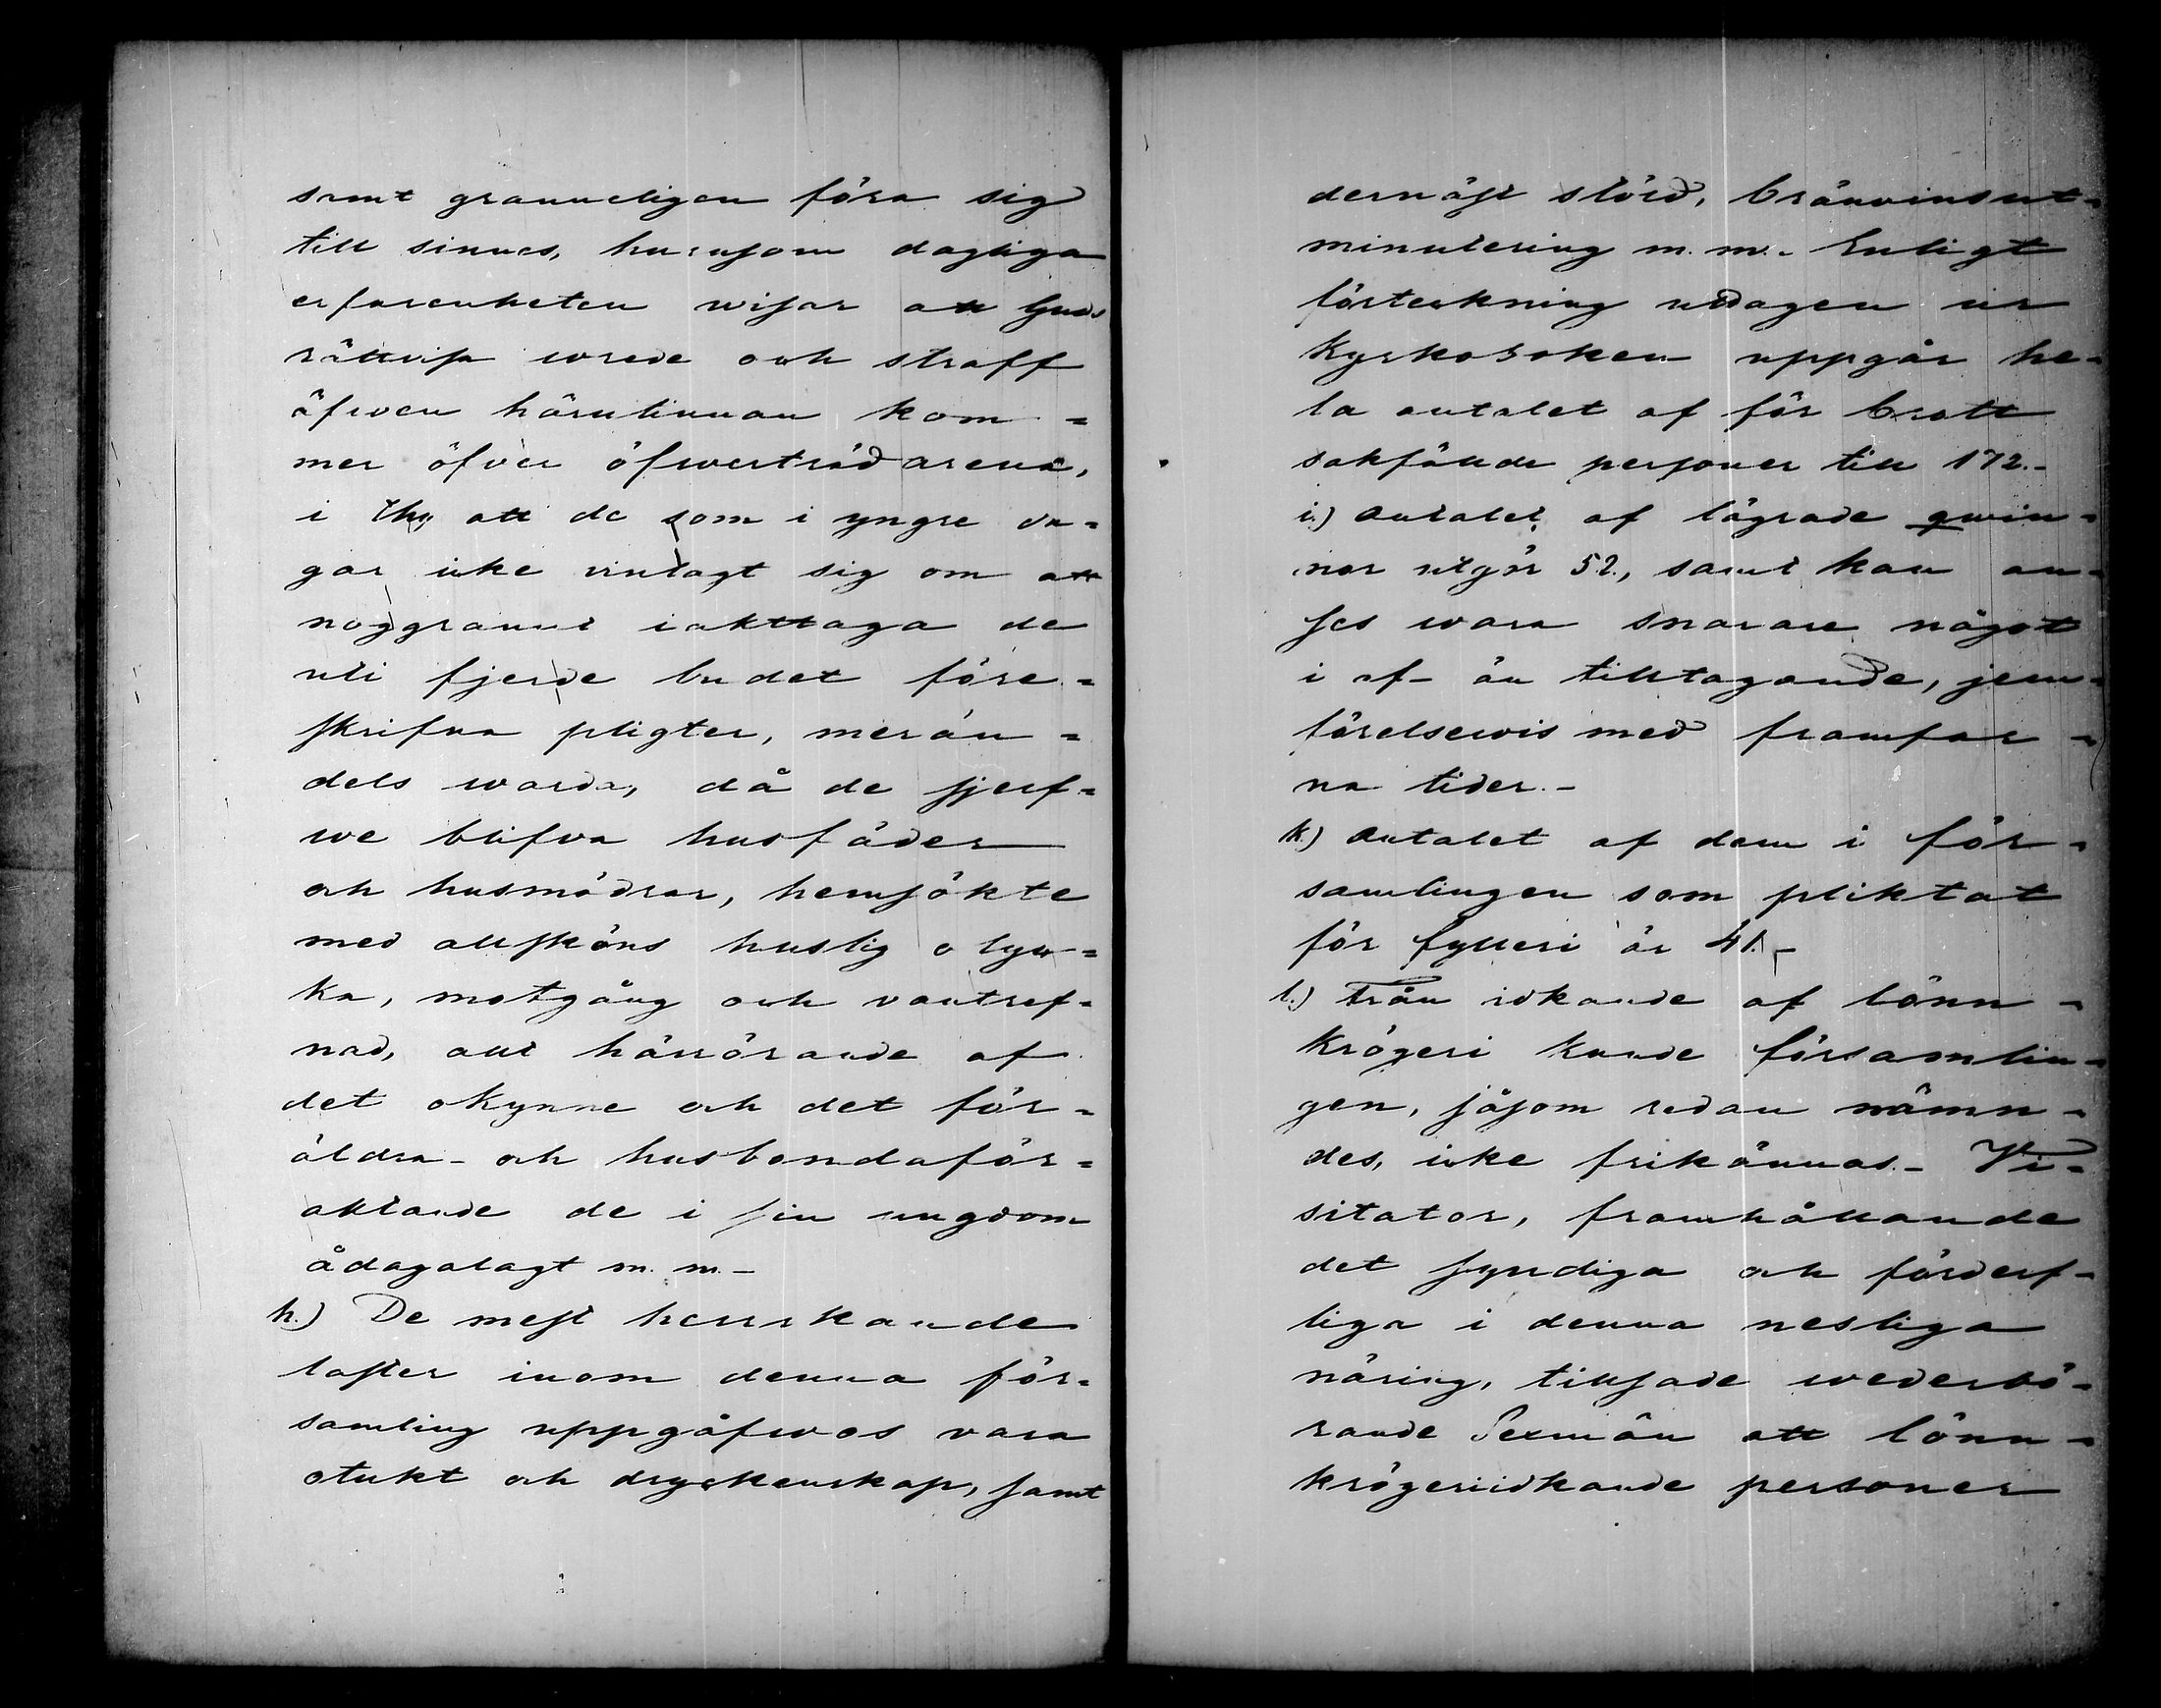 samt granneligen föra sig
till sinnes, hurusom dagliga
erfarenheten wisar att Guds
rättvisa wrede och straff
äfwen härutinnan kom=
mer öfver öfwerträdarena,
i thy att de som i yngre da=
gar icke vinlagt sig om att
noggrannt iakttaga de
uti fjerde budet före=
skrifna pligter, merän=
dels warda, då de sjerf=
we blifva husfäder
och husmödrar, hemsökte
med allsköns huslig olyc=
ka, motgång och vantref=
nad, allt härrörande af
det okynne och det för=
äldra- och husbondaför=
aktande de i sin ungdom
ådagalagt m. m. -
h.) De mest herrskande
laster inom denna för=
samling uppgåfwos vara
otukt och dryckenskap, samt
dernäst stöld, bränvinsut=
minutering m. m. - Enligt
förteckning uddagen ur
Kyrkoboken uppgår he=
la antalet af för brott
sakfällde personer till 172. -
i.) Antalet af lägrade qwin=
nor utgör 52., samt kan an=
ses wara snarare något
i af- än tilltagande, jem=
förelsewis med framfar=
na tider. -
k.) Antalet af dem i för=
samlingen som pliktat
för fylleri är 41. -
l.) Från idkande af lönn=
krögeri kunde församlin=
gen, såsom redan nämn=
des, icke frikännas. - Vi=
sitator, framhållande
det syndiga och förderf=
liga i denna nesliga
näring, tillsade wederbö=
rande Sexmän att lönn=
krögeriidkande personer